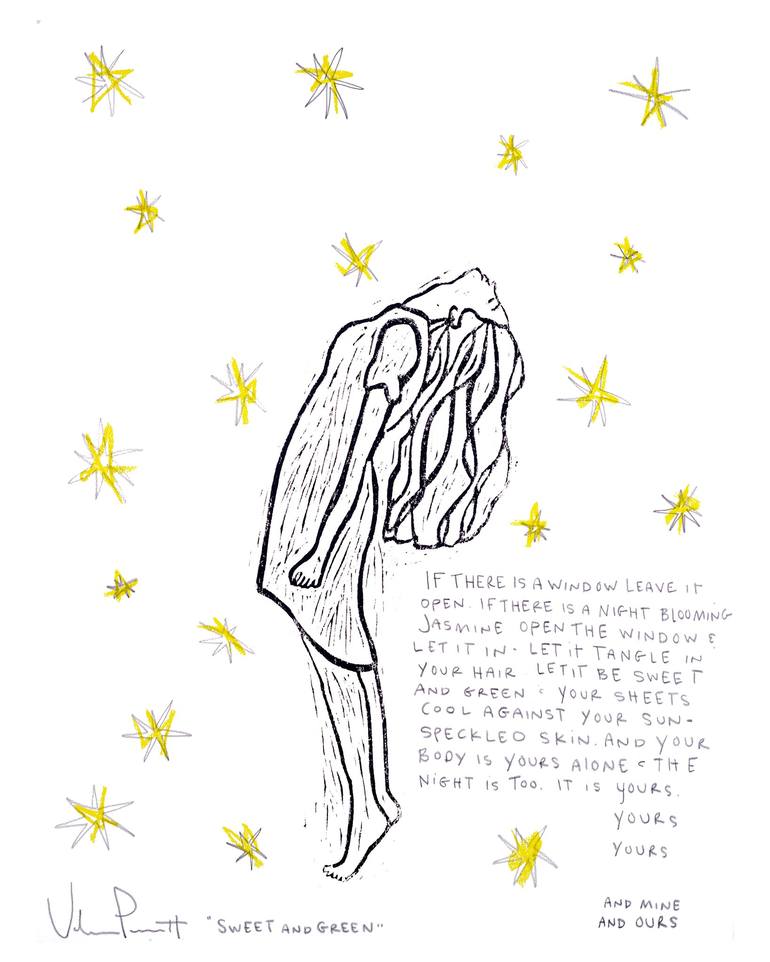 IF THERE IS A WINDOW LEAVE IT
OPEN. IF THERE IS A NIGHT BLOOMING
JASMINE OPEN THE WINDOW &
LET IT IN. LET IT TANGLE IN
YOUR HAIR. LET IT BE SWEET
AND GREEN & YOUR SHEETS
COOL AGAINST YOUR SUN-
SPECKLED SKIN. AND YOUR
BODY IS YOURS ALONE & THE
NIGHT IS TOO. IT IS YOURS.
YOURS
YOURS
AND MINE
AND OURS
"SWEET AND GREEN"